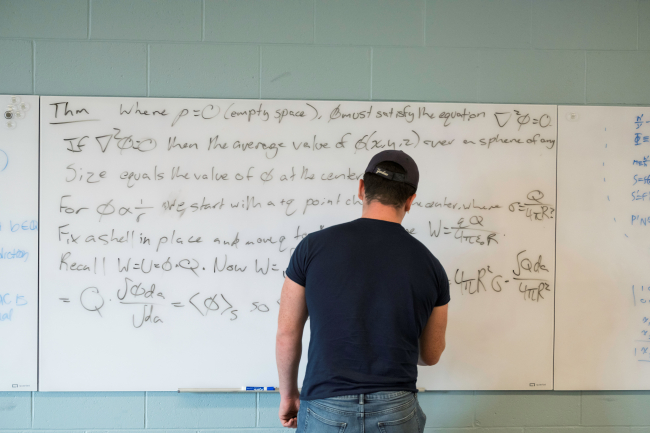 Thm Where ρ=0 (empty space), Φ must satisfy the equation ∇²Φ=0.
If ∇²Φ=0 then the average value of Φ(x,y,z) over an sphere of any
Size equals the value of Φ at the center
For Φ α 1/r start with a +q point ch center, where σ=Q/4πR²
Fix a shell in place and move q W= qQ/4πε₀R
Recall W=U=Φ·Q. Now W= 4πR²σ · ∫Qda/4πR²
= Q · ∫Φda/∫da = <Φ>s so